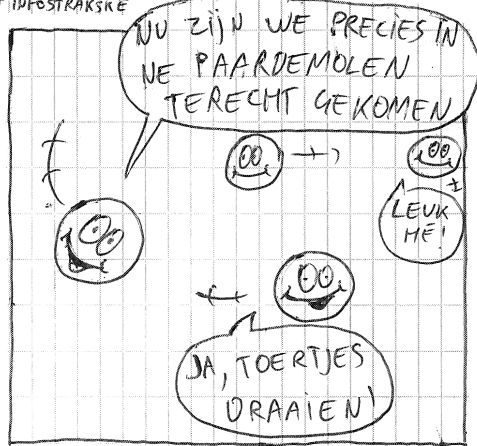 INFOSTRAKSKE
NU ZIJN WE PRECIES IN
NE PAARDEMOLEN
TERECHT GEKOMEN
LEUK
HÉ!
JA, TOERTJES
DRAAIEN!